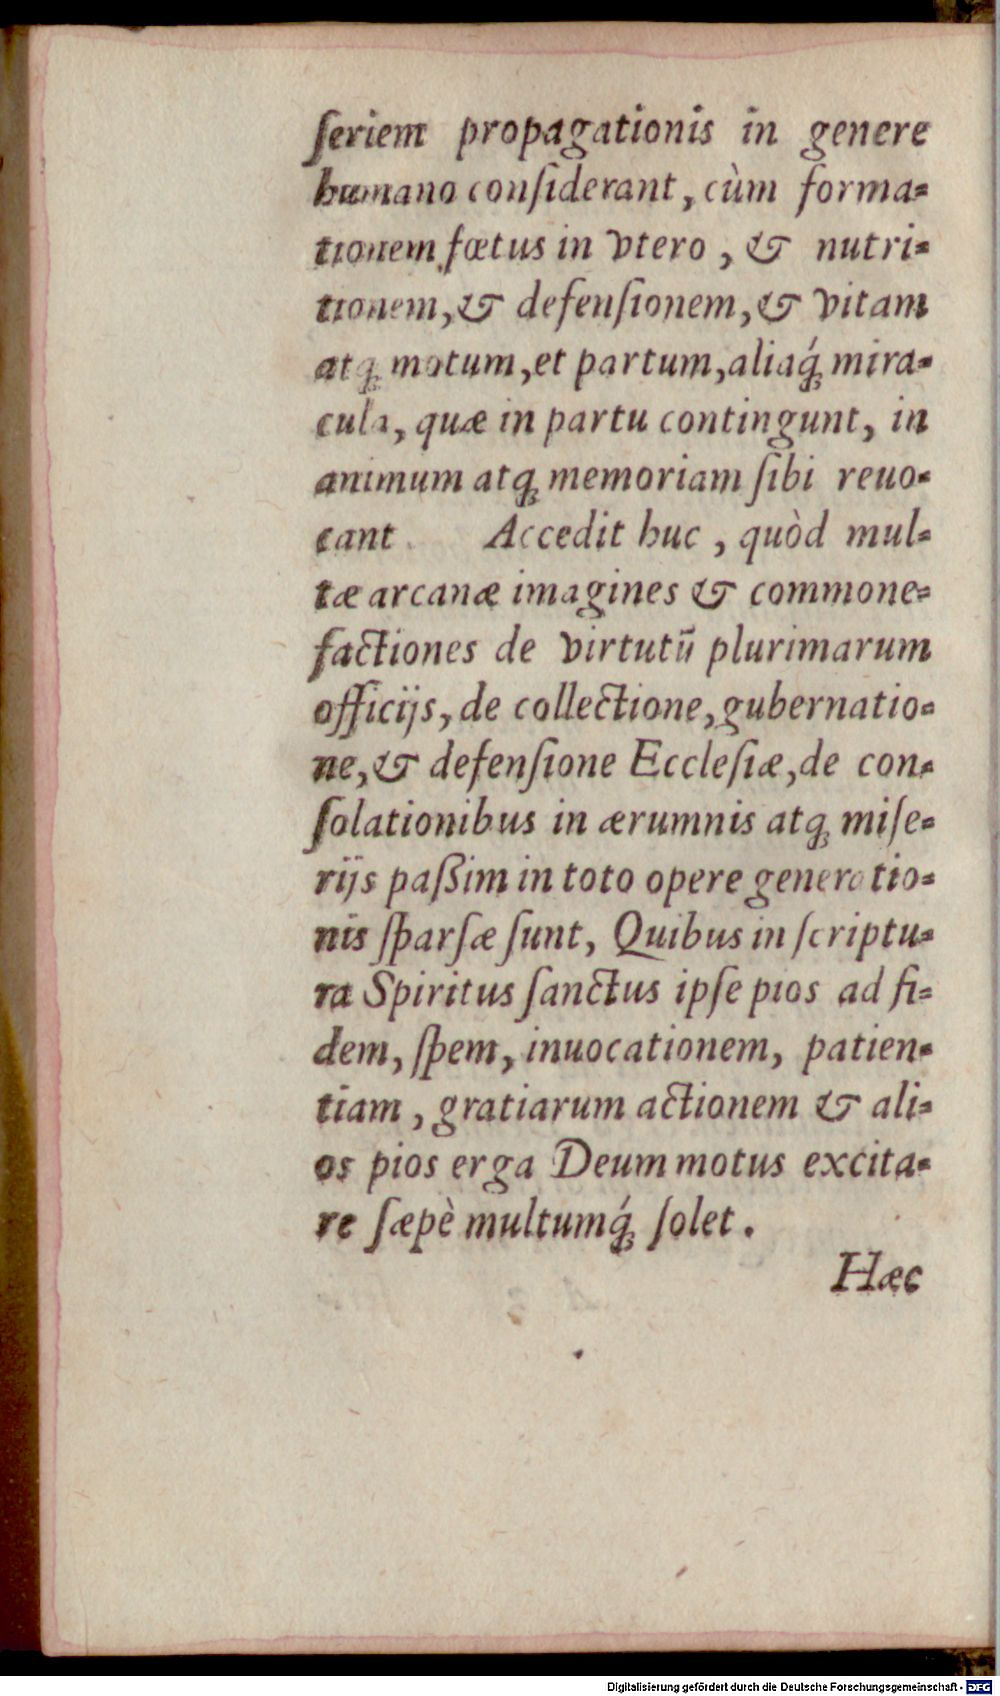 ſeriem propagationis in genere
humano conſiderant, cùm forma⸗
tionem fœtus in vtero, & nutri⸗
tionem, & defenſionem, & vitam
atq; motum, et partum, aliaq́; mira⸗
cula, quæ in partu contingunt, in
animum atq; memoriam ſibi reuo⸗
cant. Accedit huc, quòd mul⸗
tæ arcanæ imagines & commone⸗
factiones de virtutū plurimarum
officijs, de collectione, gubernatio⸗
ne, & defenſione Eccleſiæ, de con⸗
ſolationibus in ærumnis atq; miſe⸗
rijs paßim in toto opere generatio⸗
nis ſparſæ ſunt, Quibus in ſcriptu⸗
ra Spiritus ſanctus ipſe pios ad fi⸗
dem, ſpem, inuocationem, patien⸗
tiam, gratiarum actionem & ali⸗
os pios erga Deum motus excita⸗
re ſæpè multumq́; ſolet.
Hæc
Digitalisierung gefördert durch die Deutsche Forschungsgemeinschaft - DFG